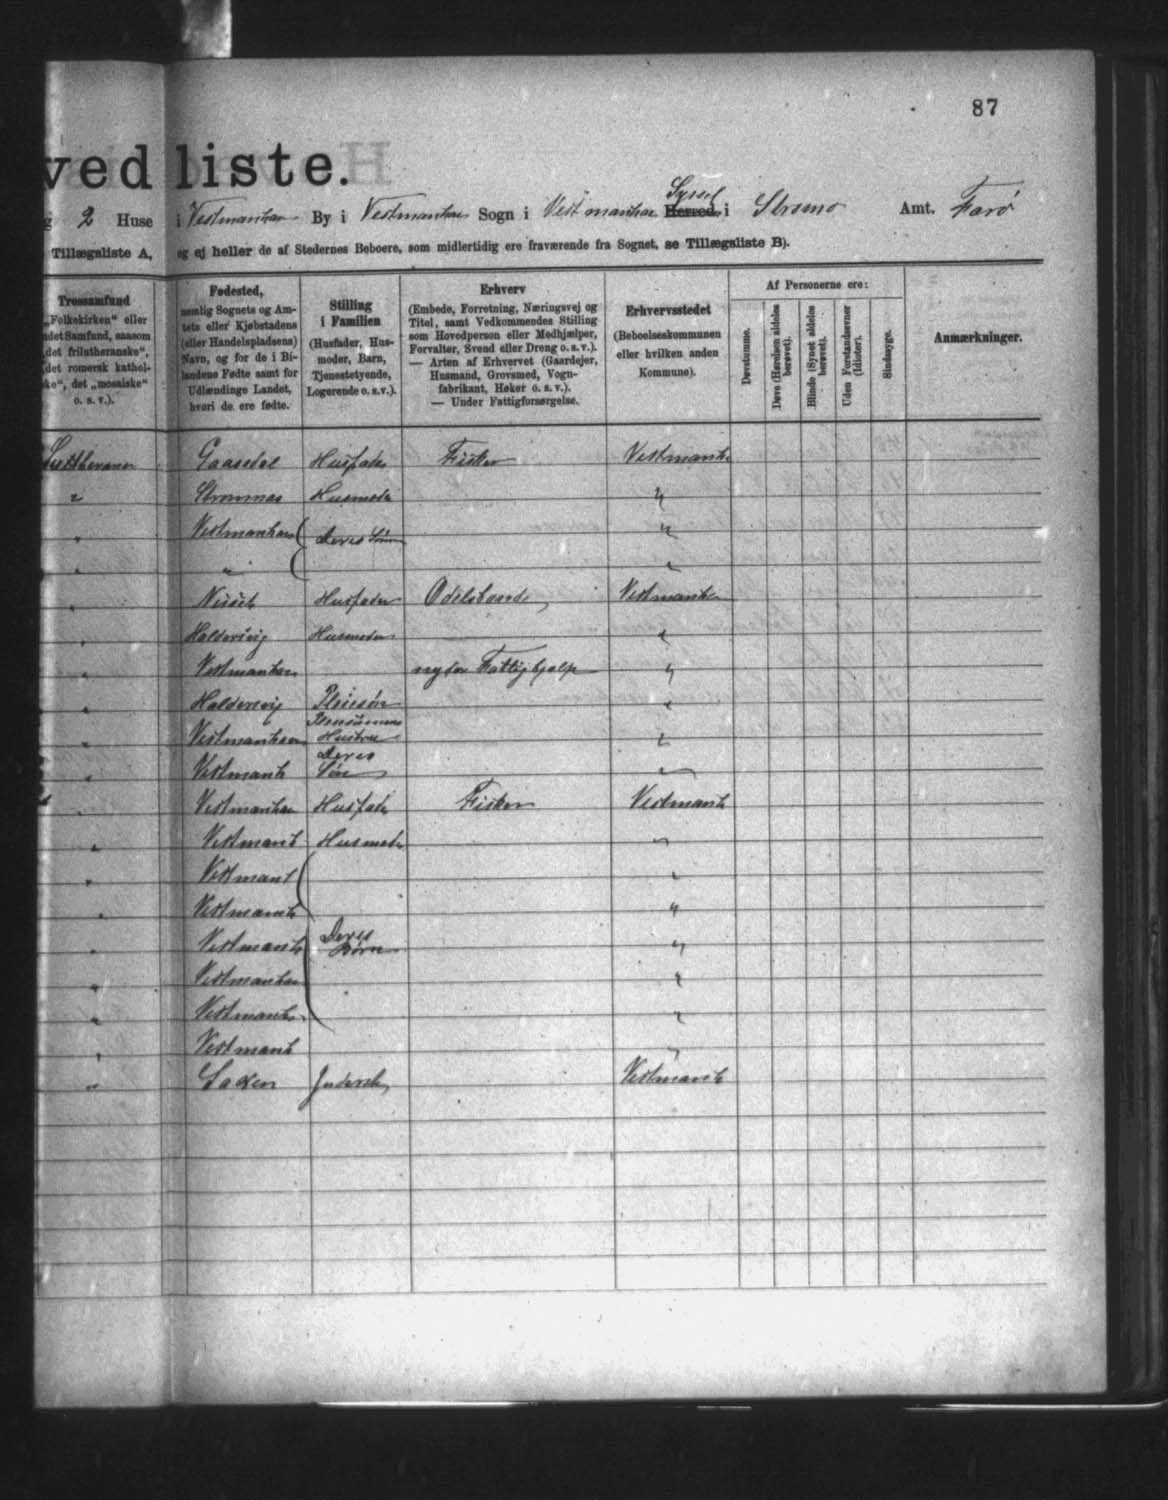 87
ved liste.
g 2 Huse i Vestmanhavn By i Vestmanhavn Sogn i Vestmanhavn Herred Syssel i Strømø Amt. Færø
Tillægsliste A, og ej heller de af Stedernes Beboere, som midlertidig ere fraværende fra Sognet, se Tillægsliste B).
Trossamfund
„Folkekirken“ eller
ndet Samfund, saasom
„det frilutheranske“,
„det romersk kathol-
ske“, det „mosaiske“
o. s. v.).
Fødested,
nemlig Sognets og Am-
tets eller Kjøbstadens
(eller Handelspladsens)
Navn, og for de i Bi-
landene Fødte samt for
Udlændinge Landet,
hvori de ere fødte.
Stilling
i Familien
(Husfader, Hus-
moder, Barn,
Tjenestetyende,
Logerende o. s. v.).
Erhverv
(Embede, Forretning, Næringsvej og
Titel, samt Vedkommendes Stilling
som Hovedperson eller Medhjælper,
Forvalter, Svend eller Dreng o. s. v.).
— Arten af Erhvervet (Gaardejer,
Husmand, Grovsmed, Vogn-
fabrikant, Høker o. s. v.).
— Under Fattigforsørgelse.
Erhvervsstedet
(Beboelseskommunen
eller hvilken anden
Kommune).
Af Personerne ere:
Døvstumme.
Døve (Hørelsen aldeles
berøvet).
Blinde (Synet aldeles
berøvet).
Uden Forstandsevner
(Idioter).
Sindssyge.
Anmærkninger.
Lutheraner Gaasedal Husfader Fisker Vestmanh
" Strømnæs Husmoder "
" Vestmanhavn Deres Sønner "
" " "
" Husfader Odelsbonde Vestmanh
" Haldersvig Husmoder "
" Vestmanhavn nyder Fattighjælp "
" Haldersvig Pleiesøn "
" Vestmanhavn Hustru "
" Vestmanh Deres Søn "
" Vestmanhavn Husfader Fisker Vestmanh
" Vestmanh Husmoder "
" Vestmanh "
" Vestmanh "
" Vestmanh Deres Børn "
" Vestmanhavn "
" Vestmanh "
" Vestmanh "
" Saxen Inderste Vestmanh